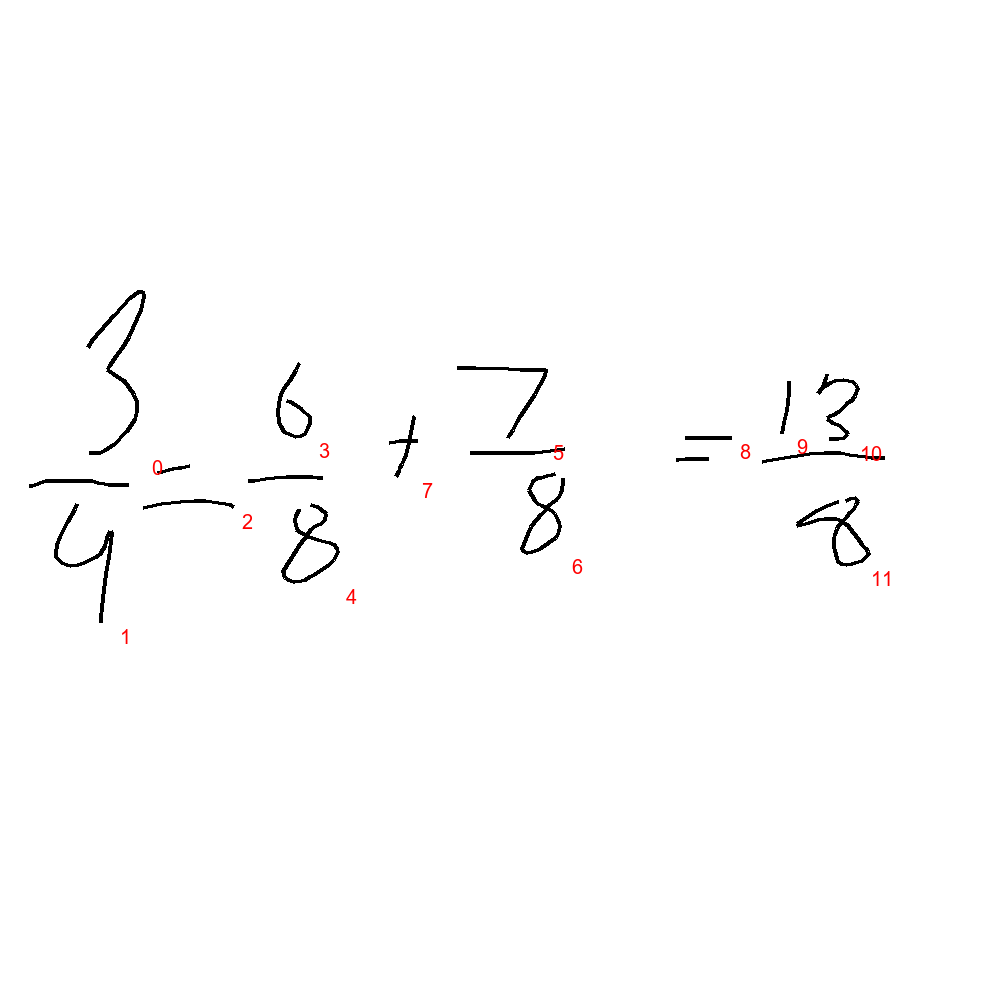 3/4 = 6/8 + 7/8 = 13/8
0 1 2 3 4 7 5 6 8 9 10 11